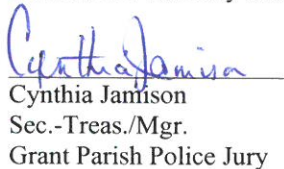 Cynthia Jamison
Cynthia Jamison
Sec.-Treas./Mgr.
Grant Parish Police Jury